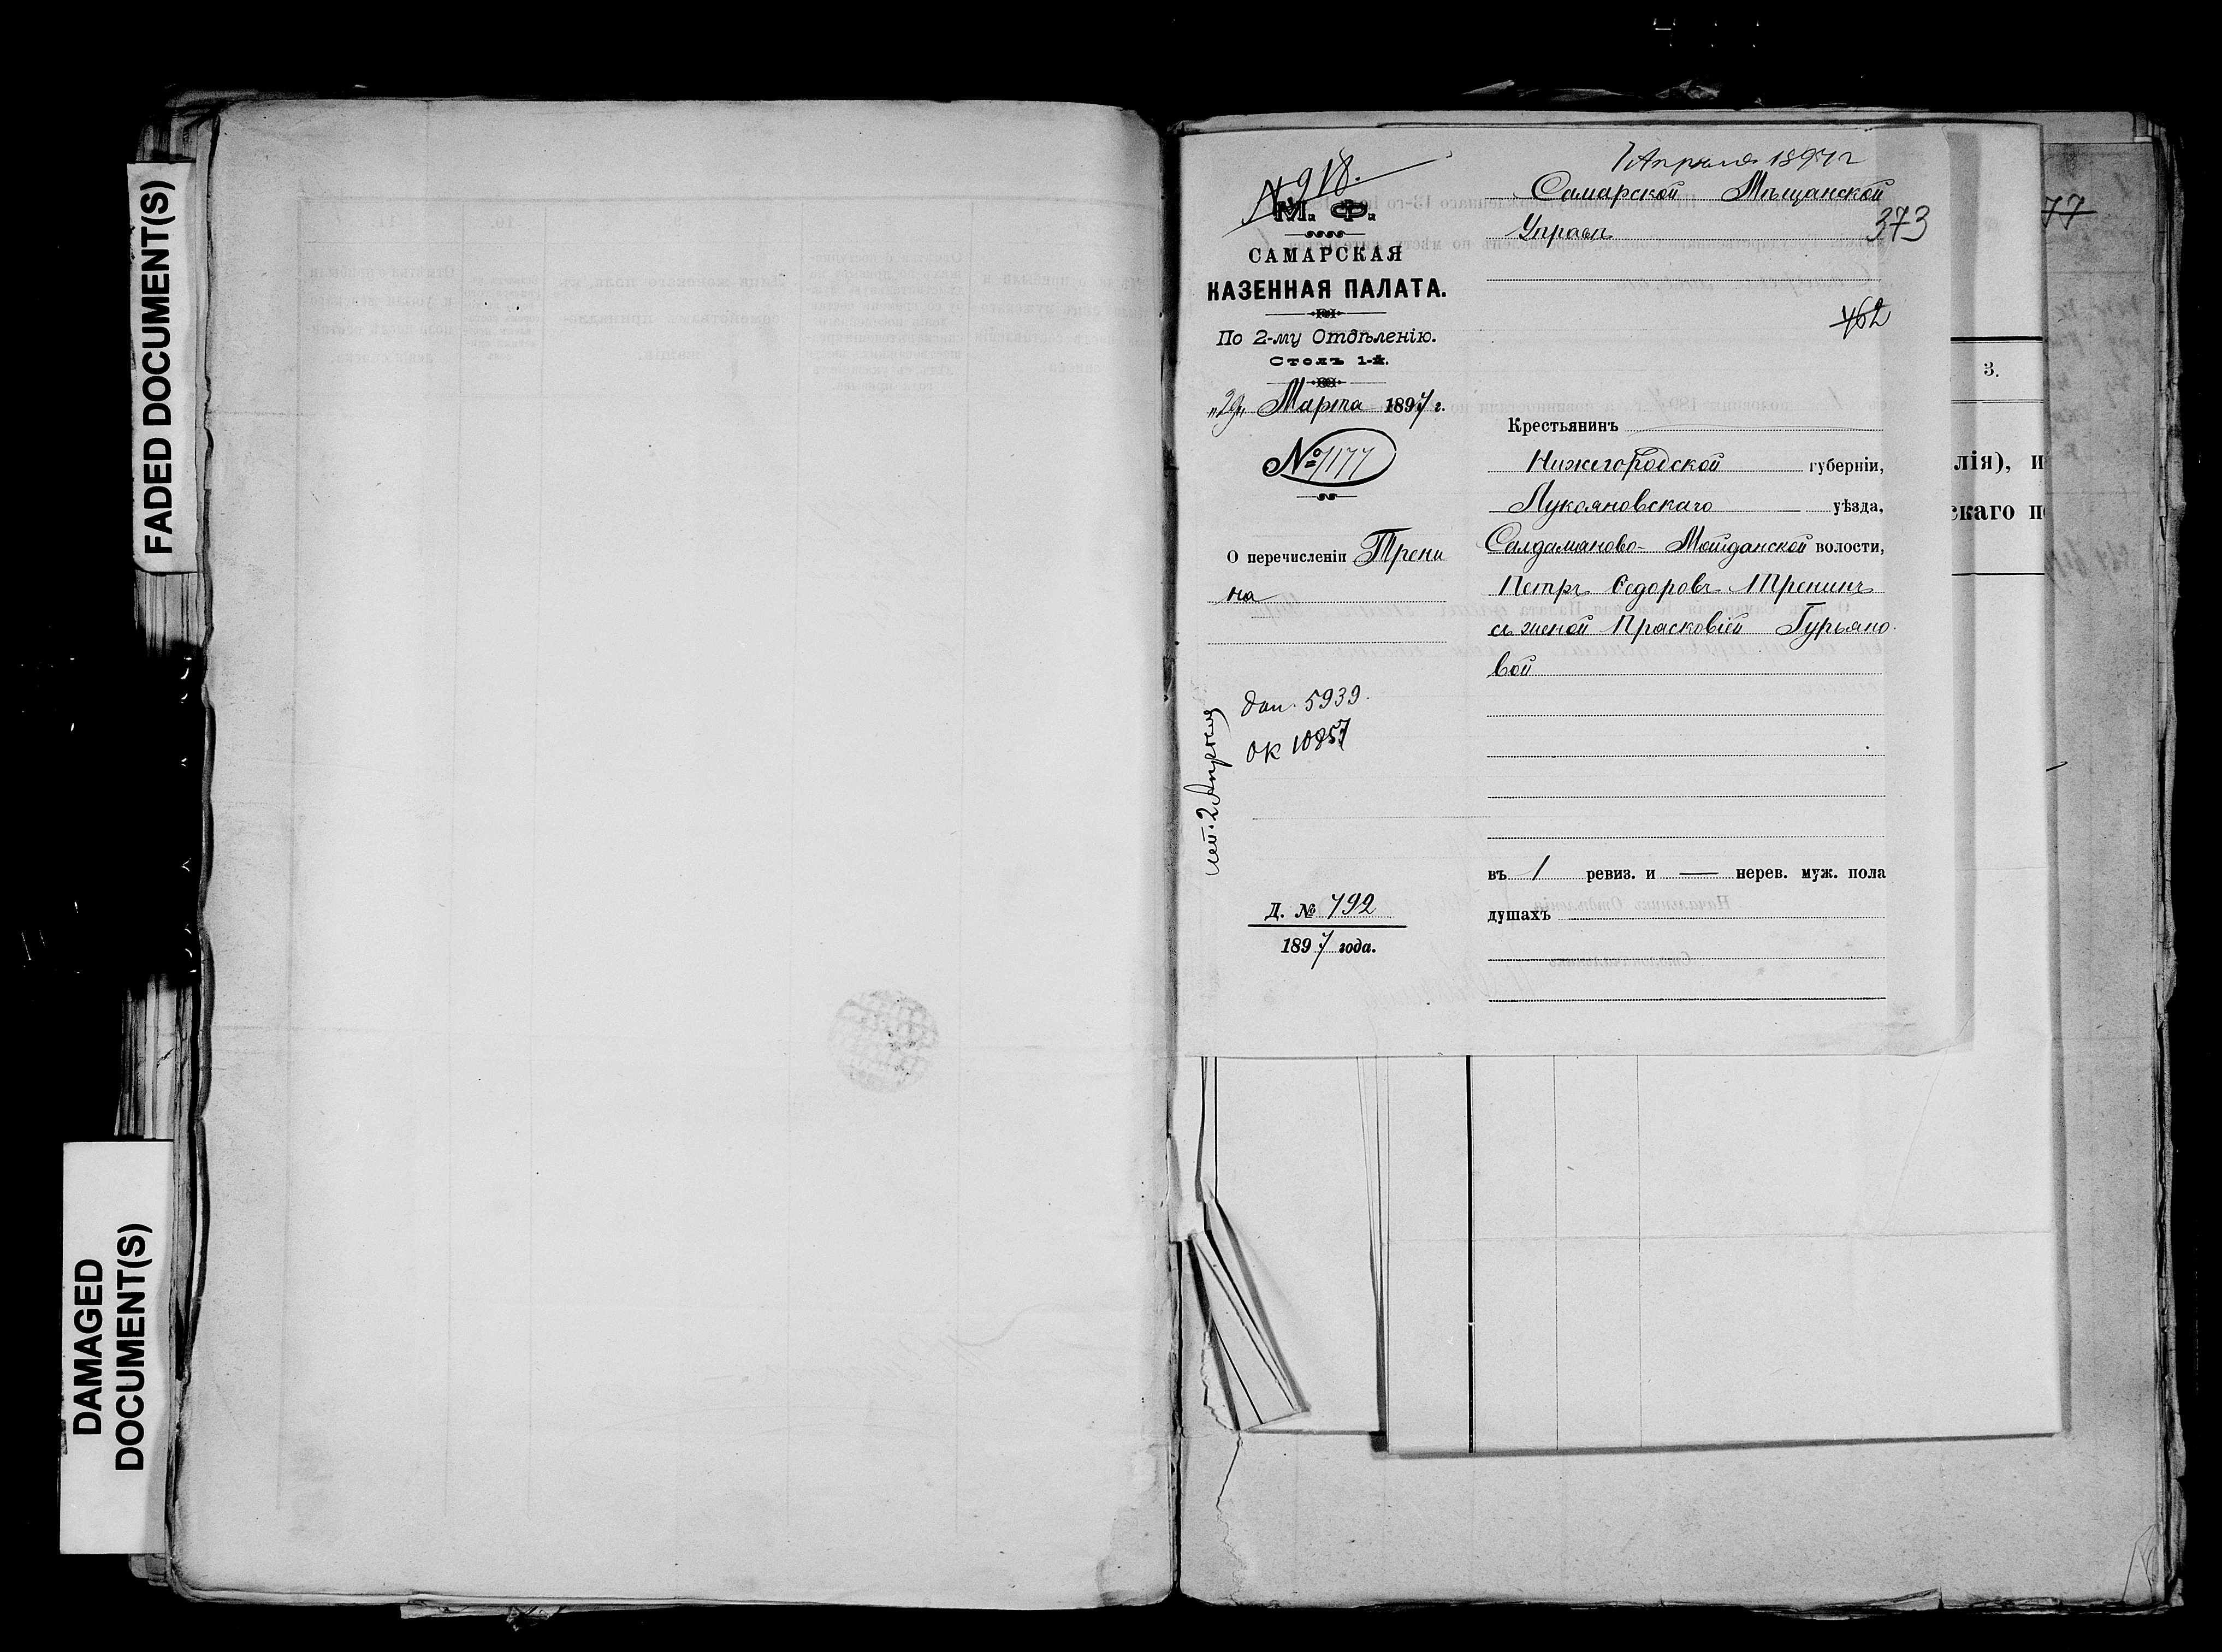 FADED DOCUMENT(S)
DAMAGED
DOCUMENT(S)
№ 918.
М. Ф.
САМАРСКАЯ
КАЗЕННАЯ ПАЛАТА.
По 2-му Отдѣленію.
Столъ 1-й.
„29„ Марта 1897 г.
№ 1177
О перечисленіи Трени
на
доп. 5939.
ок 10857
исп. 2 Апрѣля
Д. № 792
1897 года.
1 Апрѣля 1897 г
Самарской Мѣщанской
Управѣ
373
462
Крестьянинъ
Нижегородской губерніи,
Лукояновскаго уѣзда,
Салдаманово-Майданской волости,
Петръ Ѳедоровъ Тренинъ
съ женой Прасковіей Гурьяно-
вой
въ 1 ревиз. и — нерев. муж. пола
душахъ
77
3.
лія), и
скаго п